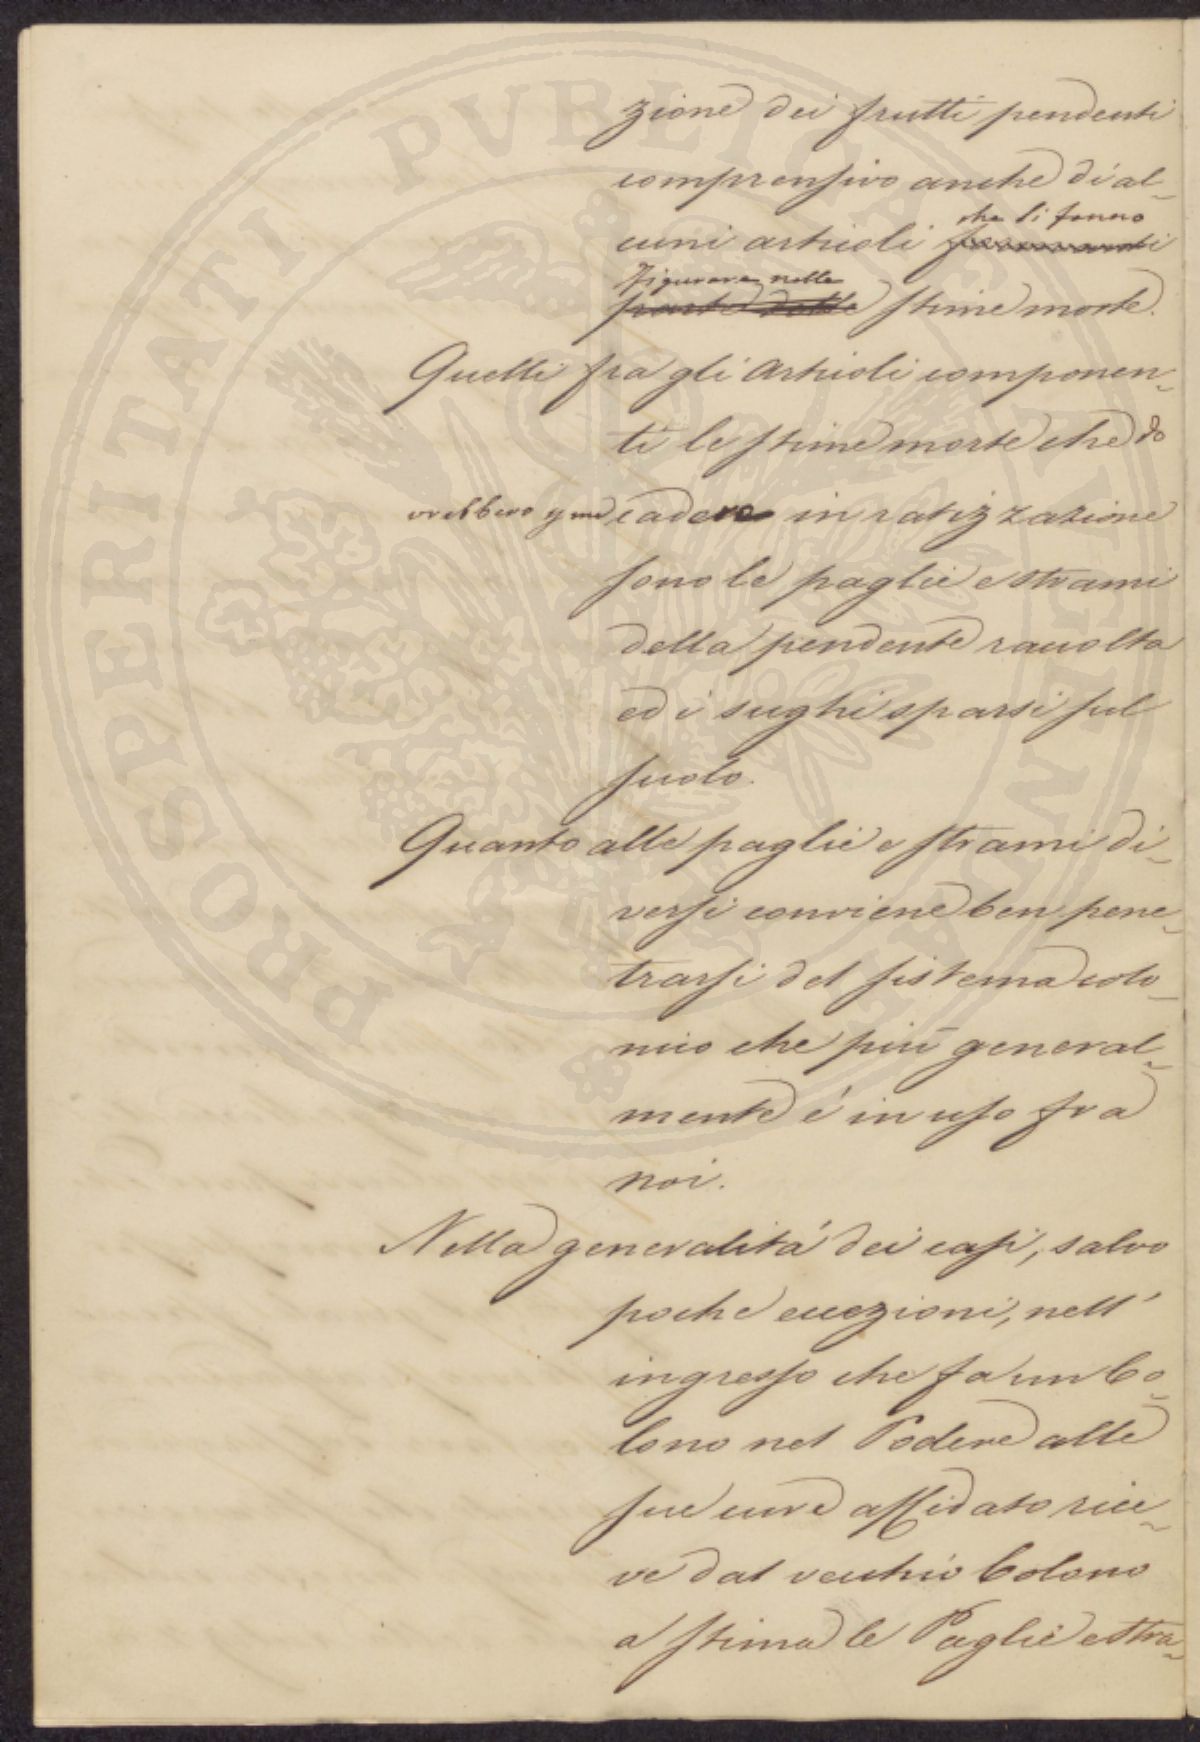 zione dei frutti pendenti
comprensivo anche di al-
cuni articoli formanti
che si fanno
figurare nelle
parte delle stime morte.
Quelli fra gli articoli componen-
ti le stime morte che do
vrebbero cadere in ratizzazione
sono le paglie e strami
della pendente raccolta
ed i sughi sparsi sul
suolo.
Quanto alle paglie e strami di-
versi conviene ben pene-
trarsi del sistema colo-
nico che più general-
mente é in uso fra
noi.
Nella generalitá dei casi, salvo
poche eccezioni, nell'
ingresso che fa un Co-
lono nel Podere alle
sue cure affidato rice-
ve dal vecchio Colono
a stima le Paglie e Stra-
PROSPERITATI PVBLICAE AVGENDAE